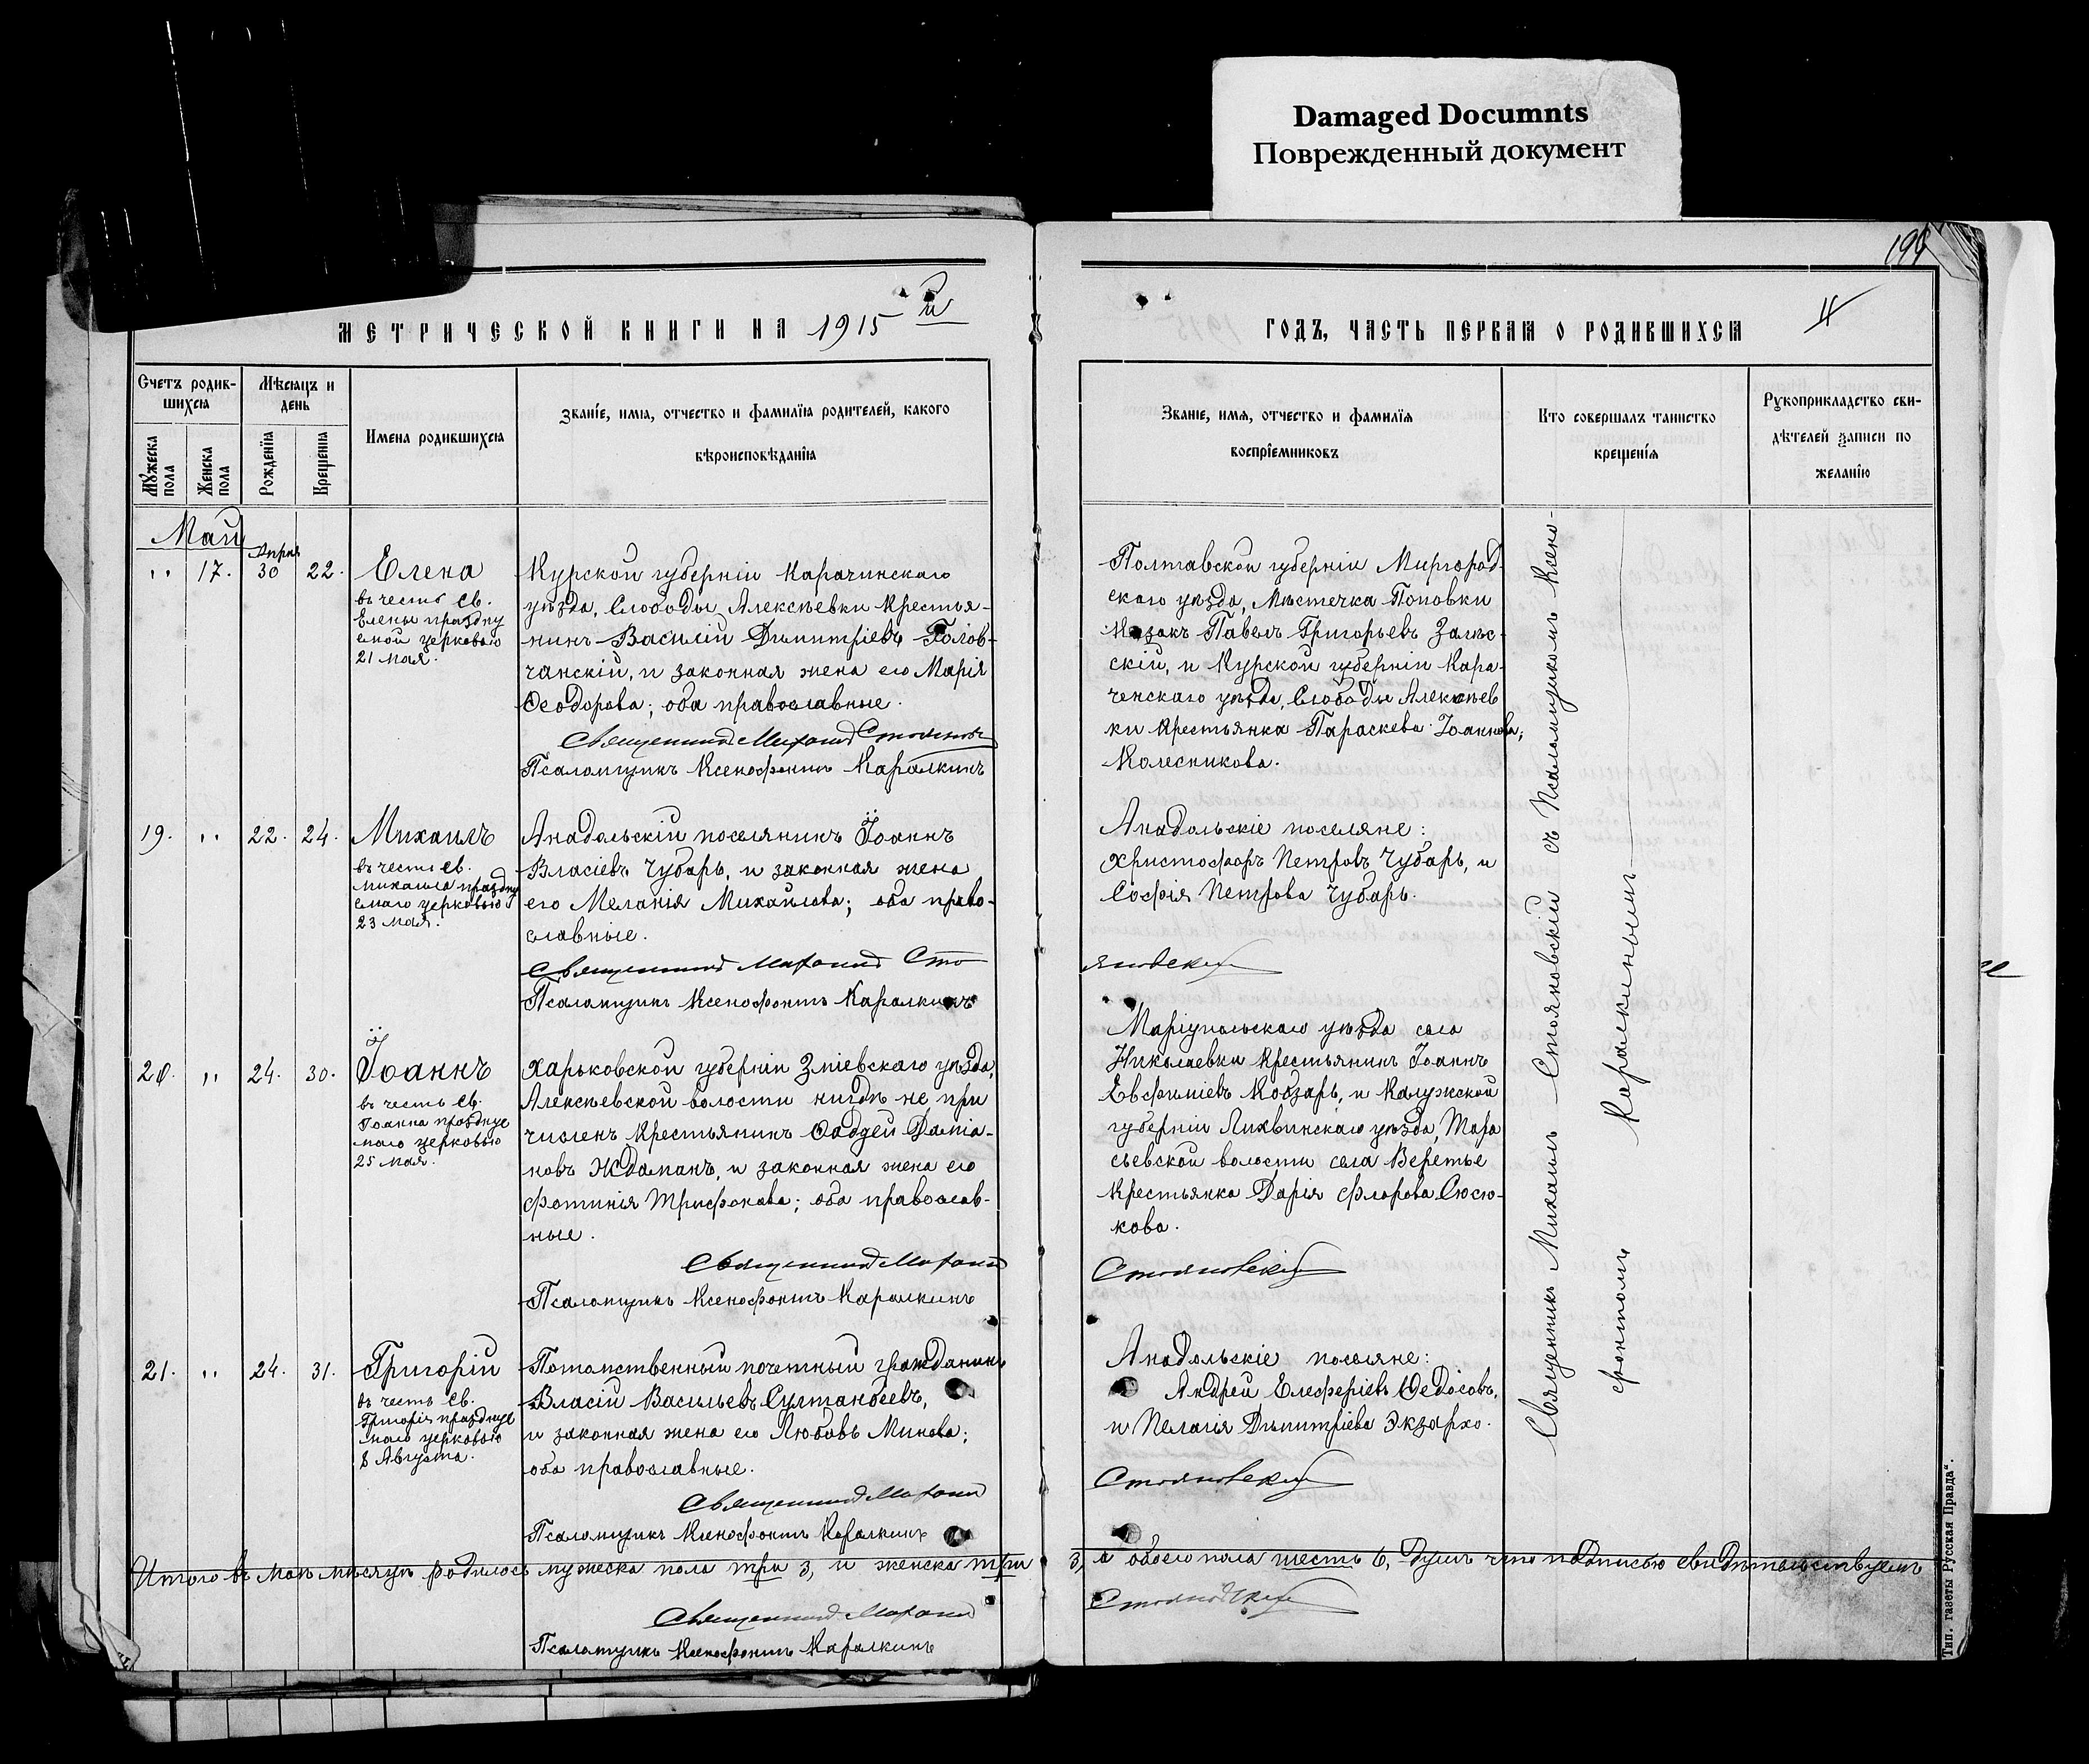 Damaged Documnts
Поврежденный документ
199
11
МЕТРИЧЕСКОЙ КНИГИ НА 1915 й
ГОДЪ, ЧАСТЬ ПЕРВАЯ О РОДИВШИХСЯ
Счетъ родив-
шихся
Мѣсяцъ и
день
Мужеска пола
Женска пола
Рожденія
Крещенія
Имена родившихся
Званіе, имя, отчество и фамилія родителей, какого
вѣроисповѣданія
Званіе, имя, отчество и фамилія
воспріемниковъ
Кто совершалъ таинство
крещенія
Рукоприкладство сви-
дѣтелей записи по
желанію
Май
Апрѣл
" 17. 30 22. Елена
въ честь св.
Елены праздну
емой церковью
21 мая.
Курской губерніи Карачинскаго
уѣзда, Слободы Алексѣевки крестья-
нинъ Василій Димитріевъ Голов-
чанскій, и законная жена его Марія
Ѳеодорова; оба православные.
Священникъ Михаилъ Стояновс
Псаломщикъ Ксенофонтъ Каралкинъ
Полтавской губерніи Миргород-
скаго уѣзда, Мѣстечка Поповки
Козакъ Павелъ Григорьевъ Залѣс-
скій, и Курской губерніи Кара-
ченскаго уѣзда, Слободы Алексѣев
ки крестьянка Параскева Іоаннова;
Колесникова.
19. " 22. 24. Михаилъ
въ честь св.
Михаила праздну
емаго церковью
23 мая.
Анадольскій поселянинъ Іоаннъ
Власіевъ Чубарь, и законная жена
его Меланія Михайлова; оба право-
славные.
Священникъ Михаилъ Сто
Псаломщикъ Ксенофонтъ Каралкинъ
Анадольскіе поселяне:
Христофоръ Петровъ Чубарь, и
Софія Петрова Чубарь.
яновскій
20. " 24. 30. Іоаннъ
въ честь св.
Іоанна празднуе
маго церковью
25 мая.
Харьковской губерніи Зміевскаго уѣзда,
Алексѣевской волости нигдѣ не при
численъ крестьянинъ Ѳаддей Даміа-
новъ Ждаманъ, и законная жена его
Фотинія Трифонова; оба православ-
ные.
Священникъ Михаилъ
Псаломщикъ Ксенофонтъ Каралкинъ
Маріупольскаго уѣзда села
Николаевки крестьянинъ Іоаннъ
Евфиміевъ Кобзарь, и Калужской
губерніи Лихвинскаго уѣзда, Тара
сьевской волости села Веретье
крестьянка Дарія Флорова Сюсю-
кова.
Стояновскій
21. " 24. 31. Григорій
въ честь св.
Григорія празднуе
маго церковью
8 Августа.
Потомственный почетный гражданинъ
Власій Васильевъ Султанбеевъ,
и законная жена его Любовь Минова;
оба православные.
Священникъ Михаилъ
Псаломщикъ Ксенофонтъ Каралкинъ
Анадольскіе поселяне:
Андрей Елеферіевъ Ѳедосовъ,
и Пелагія Димитріева Экзархо.
Стояновскій
Священникъ Михаилъ Стояновскій съ Псаломщикомъ Ксено-
фонтомъ Каралкинымъ
Итого въ маѣ мѣсяцѣ родилось мужеска пола три 3, и женска три 3, а обоего пола шесть 6, душъ что подписью свидѣтельствуемъ
Священникъ Михаилъ Стояновскій
Псаломщикъ Ксенофонтъ Каралкинъ
Тип. газеты Русская Правда“.